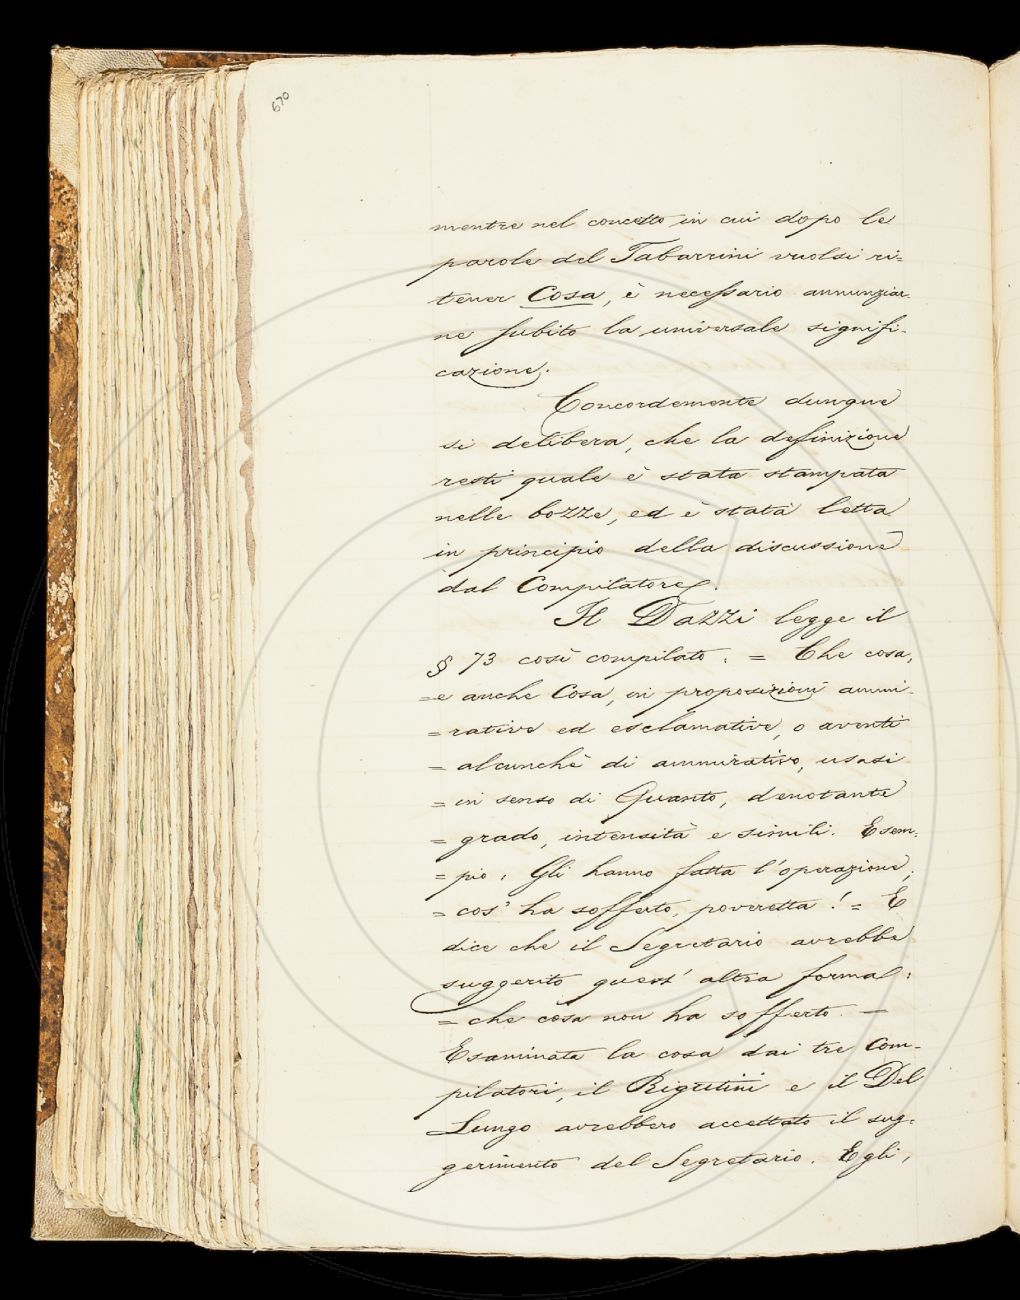 670
mentre nel concetto in cui dopo le
parole del Tabarrini vuolsi ri=
tener Cosa, è necessario annunziar
ne subito la universale signifi-
cazione.
Concordemente dunque
si delibera, che la definizione
resti quale è stata stampata
nelle bozze, ed è stata letta
in principio della discussione
dal Compilatore.
Il Dazzi legge il
§ 73 così compilato: = Che cosa,
= e anche Cosa, in proposizioni ammi-
= rative ed esclamative, o aventi
= alcunchè di ammirativo, usasi
= in senso di Quanto, denotante
= grado, intensità e simili. Esem:
= pio: Gli hanno fatta l'operazione;
= cos' ha sofferto, poveretta! = E
dice che il Segretario avrebbe
suggerito quest' altra forma:
= che cosa non ha sofferto. —
Esaminata la cosa dai tre Com-
pilatori, il Rigutini e il Del
Lungo avrebbero accettato il sug:
gerimento del Segretario. Egli,